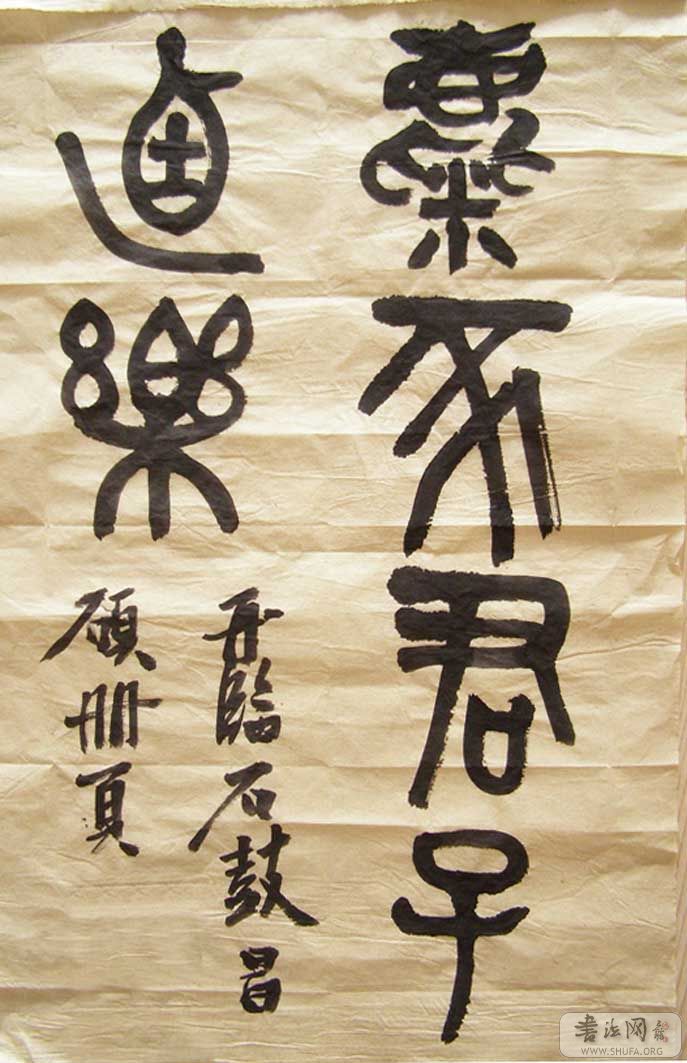 君子
逌樂
臨石鼓昌
碩冊頁
書法网
WWW.SHUFA.ORG